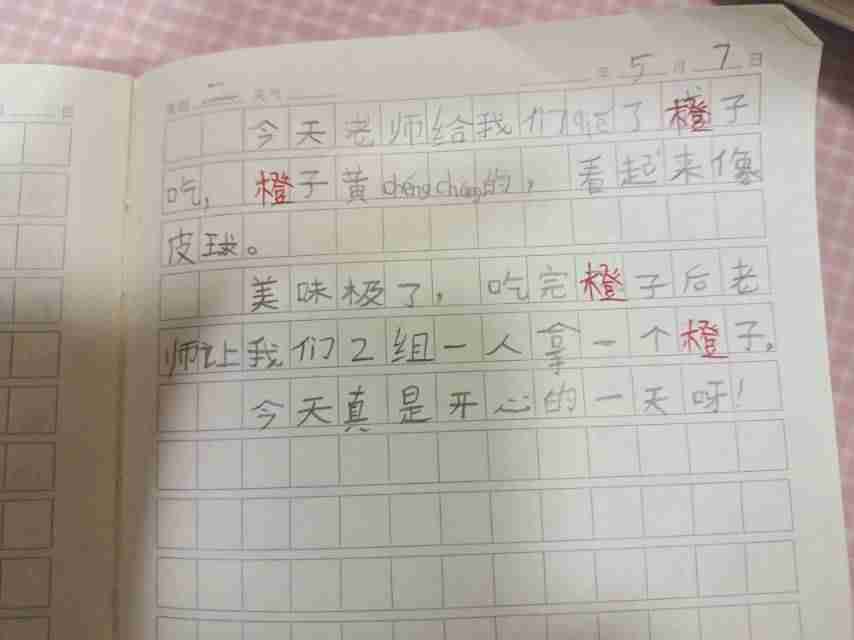 年 5 月 7 日
星期 天气
今天老师给我们了橙子
吃,橙子黄chéngchéng的,看起来像
皮球。
美味极了,吃完橙子后老
师让我们2组一人拿一个橙子。
今天真是开心的一天呀!